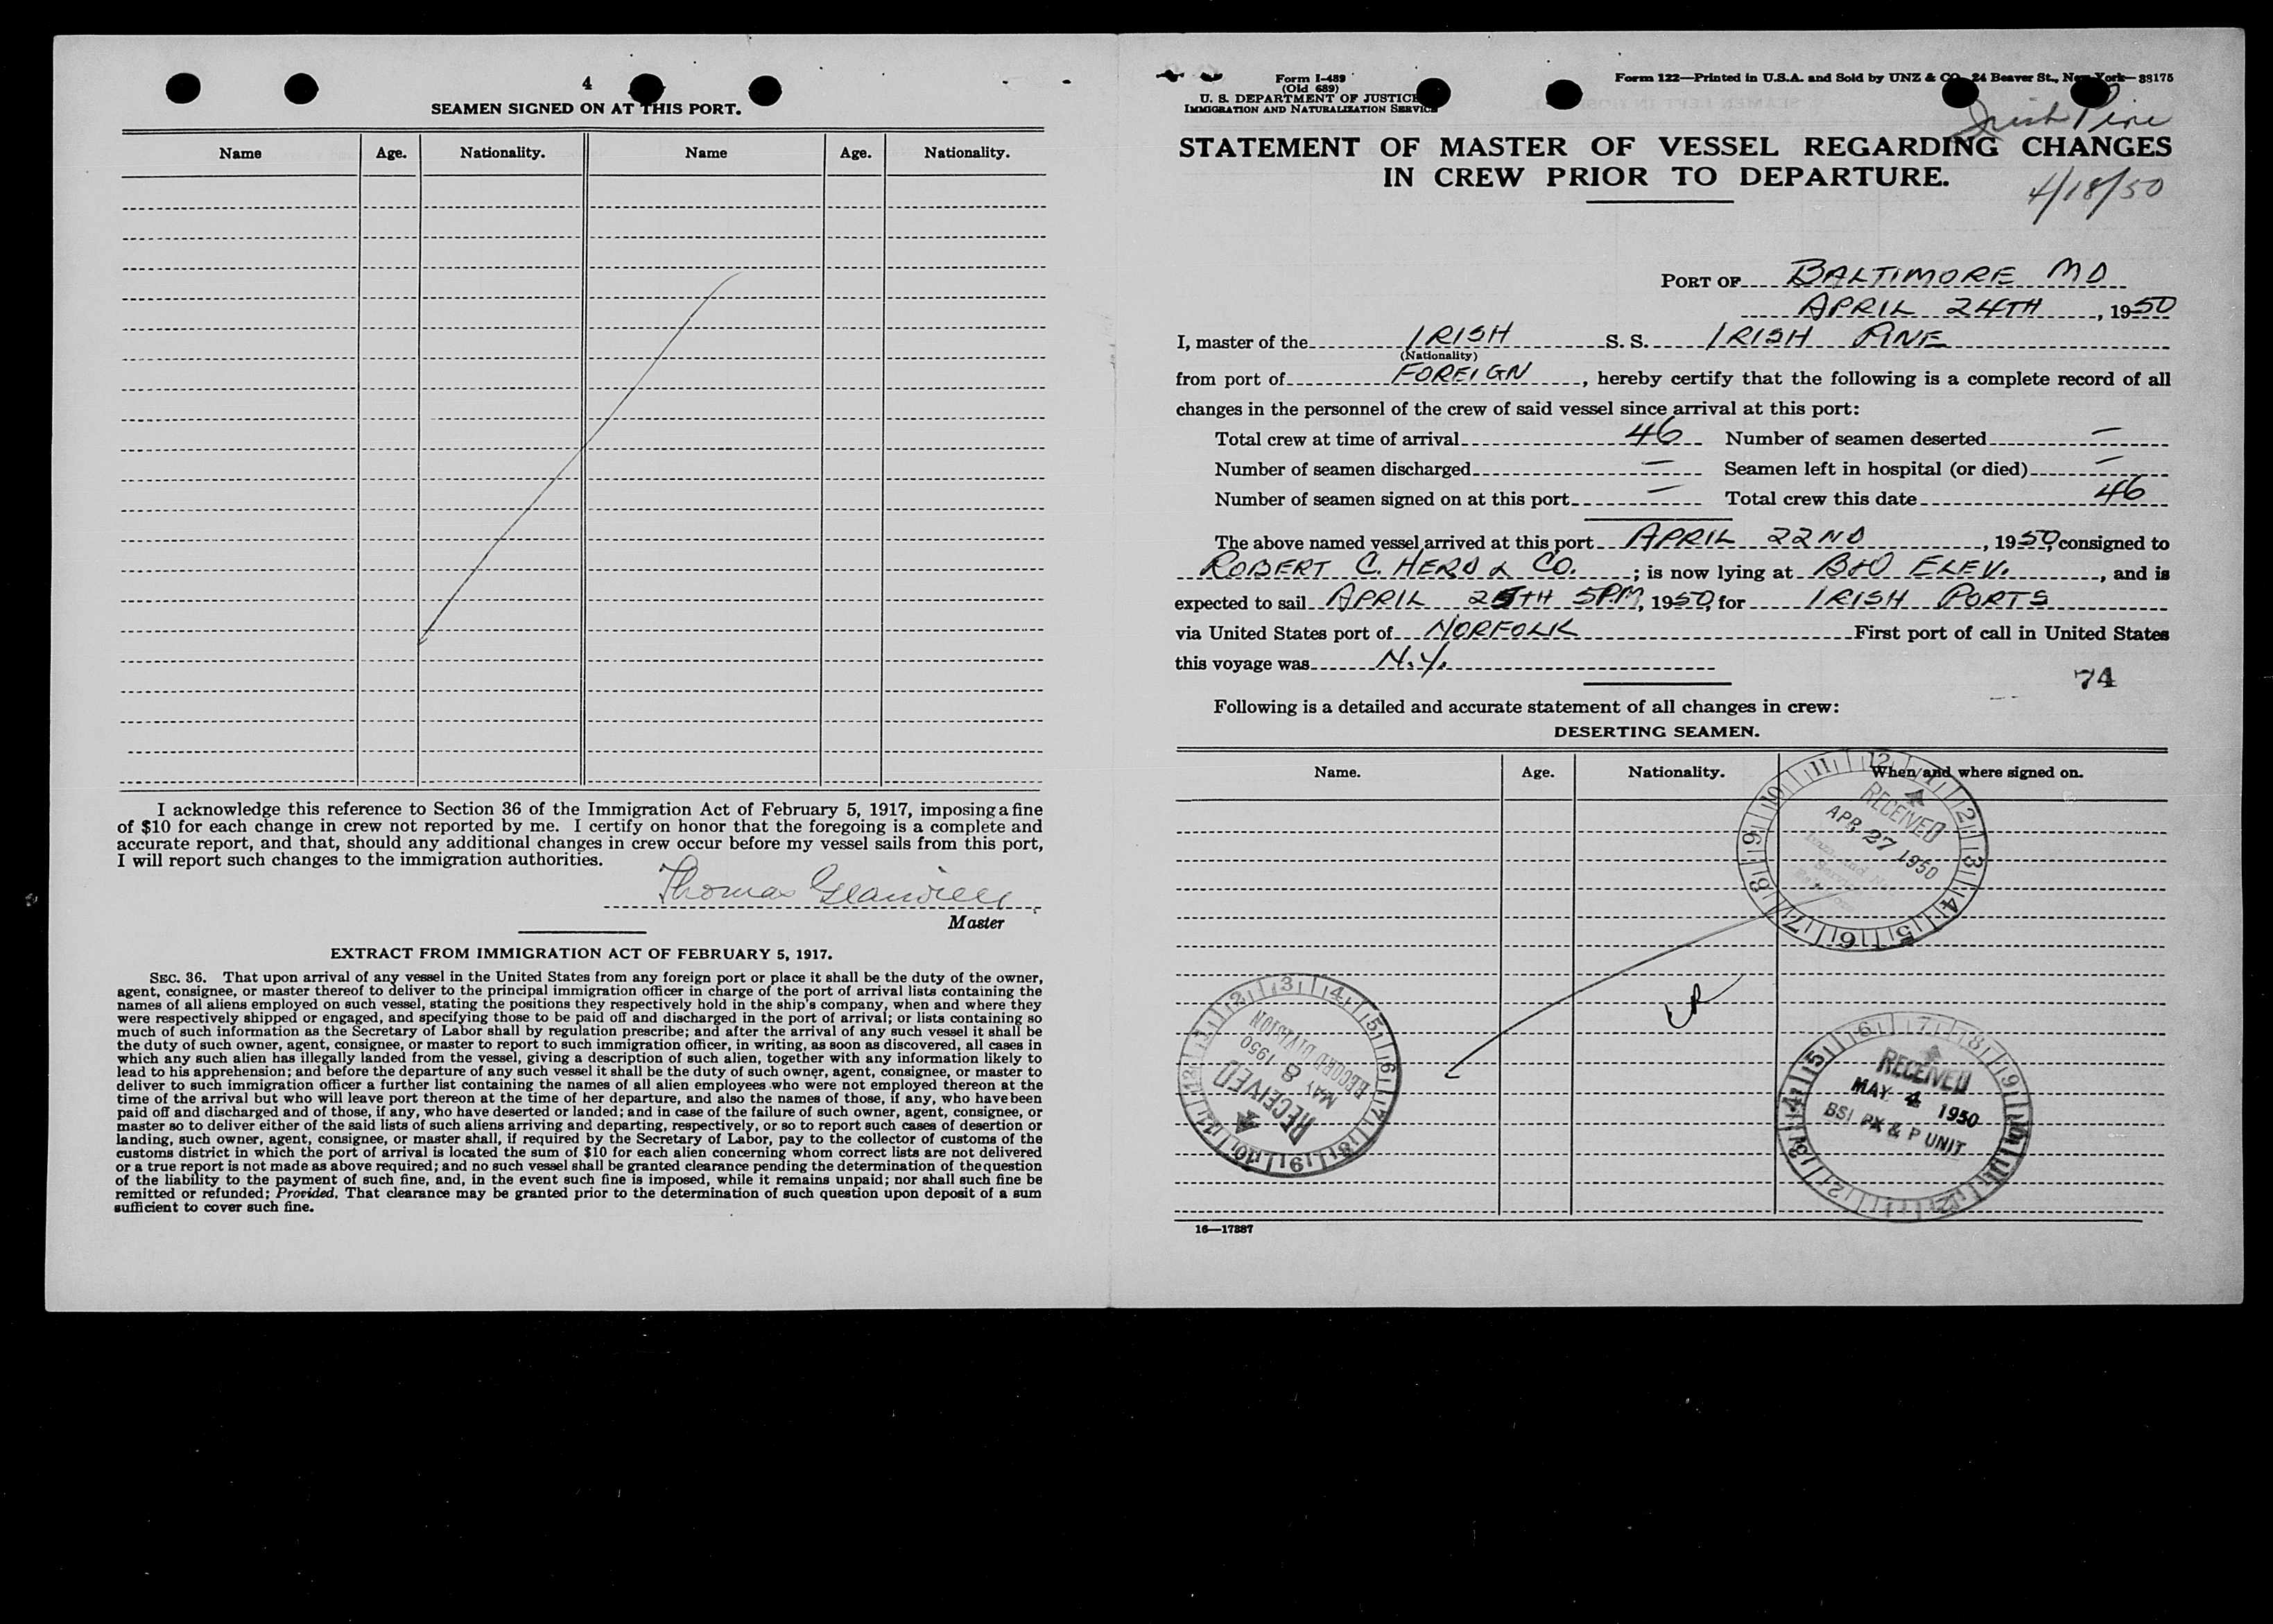 4
SEAMEN SIGNED ON AT THIS PORT.
Name Age. Nationality. Name Age. Nationality.
I acknowledge this reference to Section 36 of the Immigration Act of February 5, 1917, imposing a fine
of $10 for each change in crew not reported by me. I certify on honor that the foregoing is a complete and
accurate report, and that, should any additional changes in crew occur before my vessel sails from this port,
I will report such changes to the immigration authorities.
Thomas Glanville
Master
EXTRACT FROM IMMIGRATION ACT OF FEBRUARY 5, 1917.
SEC. 36. That upon arrival of any vessel in the United States from any foreign port or place it shall be the duty of the owner,
agent, consignee, or master thereof to deliver to the principal immigration officer in charge of the port of arrival lists containing the
names of all aliens employed on such vessel, stating the positions they respectively hold in the ship's company, when and where they
were respectively shipped or engaged, and specifying those to be paid off and discharged in the port of arrival; or lists containing so
much of such information as the Secretary of Labor shall by regulation prescribe; and after the arrival of any such vessel it shall be
the duty of such owner, agent, consignee, or master to report to such immigration officer, in writing, as soon as discovered, all cases in
which any such alien has illegally landed from the vessel, giving a description of such alien, together with any information likely to
lead to his apprehension; and before the departure of any such vessel it shall be the duty of such owner, agent, consignee, or master to
deliver to such immigration officer a further list containing the names of all alien employees who were not employed thereon at the
time of the arrival but who will leave port thereon at the time of her departure, and also the names of those, if any, who have been
paid off and discharged and of those, if any, who have deserted or landed; and in case of the failure of such owner, agent, consignee, or
master so to deliver either of the said lists of such aliens arriving and departing, respectively, or so to report such cases of desertion or
landing, such owner, agent, consignee, or master shall, if required by the Secretary of Labor, pay to the collector of customs of the
customs district in which the port of arrival is located the sum of $10 for each alien concerning whom correct lists are not delivered
or a true report is not made as above required; and no such vessel shall be granted clearance pending the determination of the question
of the liability to the payment of such fine, and, in the event such fine is imposed, while it remains unpaid; nor shall such fine be
remitted or refunded; Provided, That clearance may be granted prior to the determination of such question upon deposit of a sum
sufficient to cover such fine.
Form I-489
(Old 689)
U. S. DEPARTMENT OF JUSTICE
IMMIGRATION AND NATURALIZATION SERVICE
Form 122—Printed in U.S.A. and Sold by UNZ & CO., 24 Beaver St., New York—38175
Irish Pine
STATEMENT OF MASTER OF VESSEL REGARDING CHANGES
IN CREW PRIOR TO DEPARTURE.
4/18/50
PORT OF BALTIMORE MD
APRIL 24TH, 1950
I, master of the IRISH S. S. IRISH PINE
(Nationality)
from port of FOREIGN, hereby certify that the following is a complete record of all
changes in the personnel of the crew of said vessel since arrival at this port:
Total crew at time of arrival 46 Number of seamen deserted —
Number of seamen discharged — Seamen left in hospital (or died) —
Number of seamen signed on at this port — Total crew this date 46
The above named vessel arrived at this port APRIL 22ND, 1950, consigned to
ROBERT C. HERD & CO.; is now lying at B&O ELEV., and is
expected to sail APRIL 25TH 5PM, 1950, for IRISH PORTS
via United States port of NORFOLK First port of call in United States
this voyage was N.Y.
74
Following is a detailed and accurate statement of all changes in crew:
DESERTING SEAMEN.
Name. Age. Nationality. When and where signed on.
RECEIVED
APR 27 1950
RECEIVED
MAY 8 1950
RECORD DIVISION
RECEIVED
MAY 4 1950
BSI PX & P UNIT
16—17887